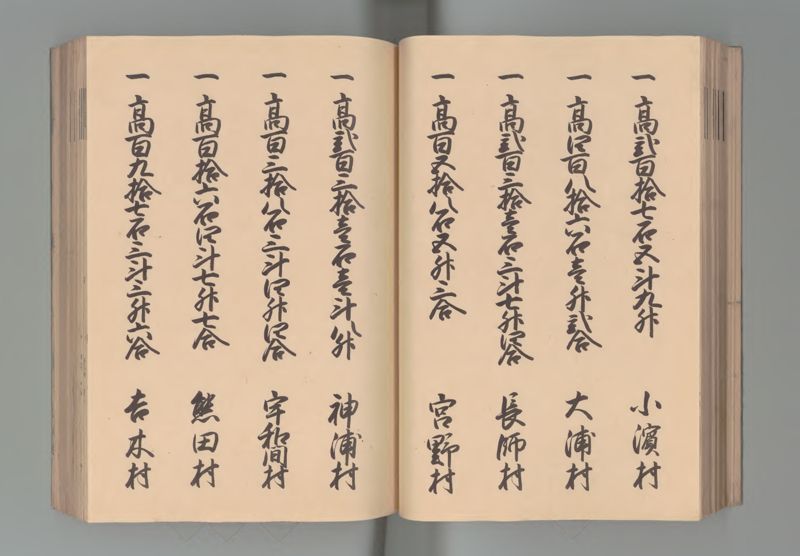 一 高弐百拾七石五斗九升 小濱村
一 高四百八拾六石壱升弐合 大浦村
一 高弐百三拾壱石三斗七升四合 長師村
一 高百五拾八石五升三合 宮野村
一 高弐百三拾壱石壱斗八升 神浦村
一 高百三拾八石三斗四升四合 宇和間村
一 高百拾六石四斗七升七合 熊田村
一 高百九拾七石三斗三升六合 吉木村